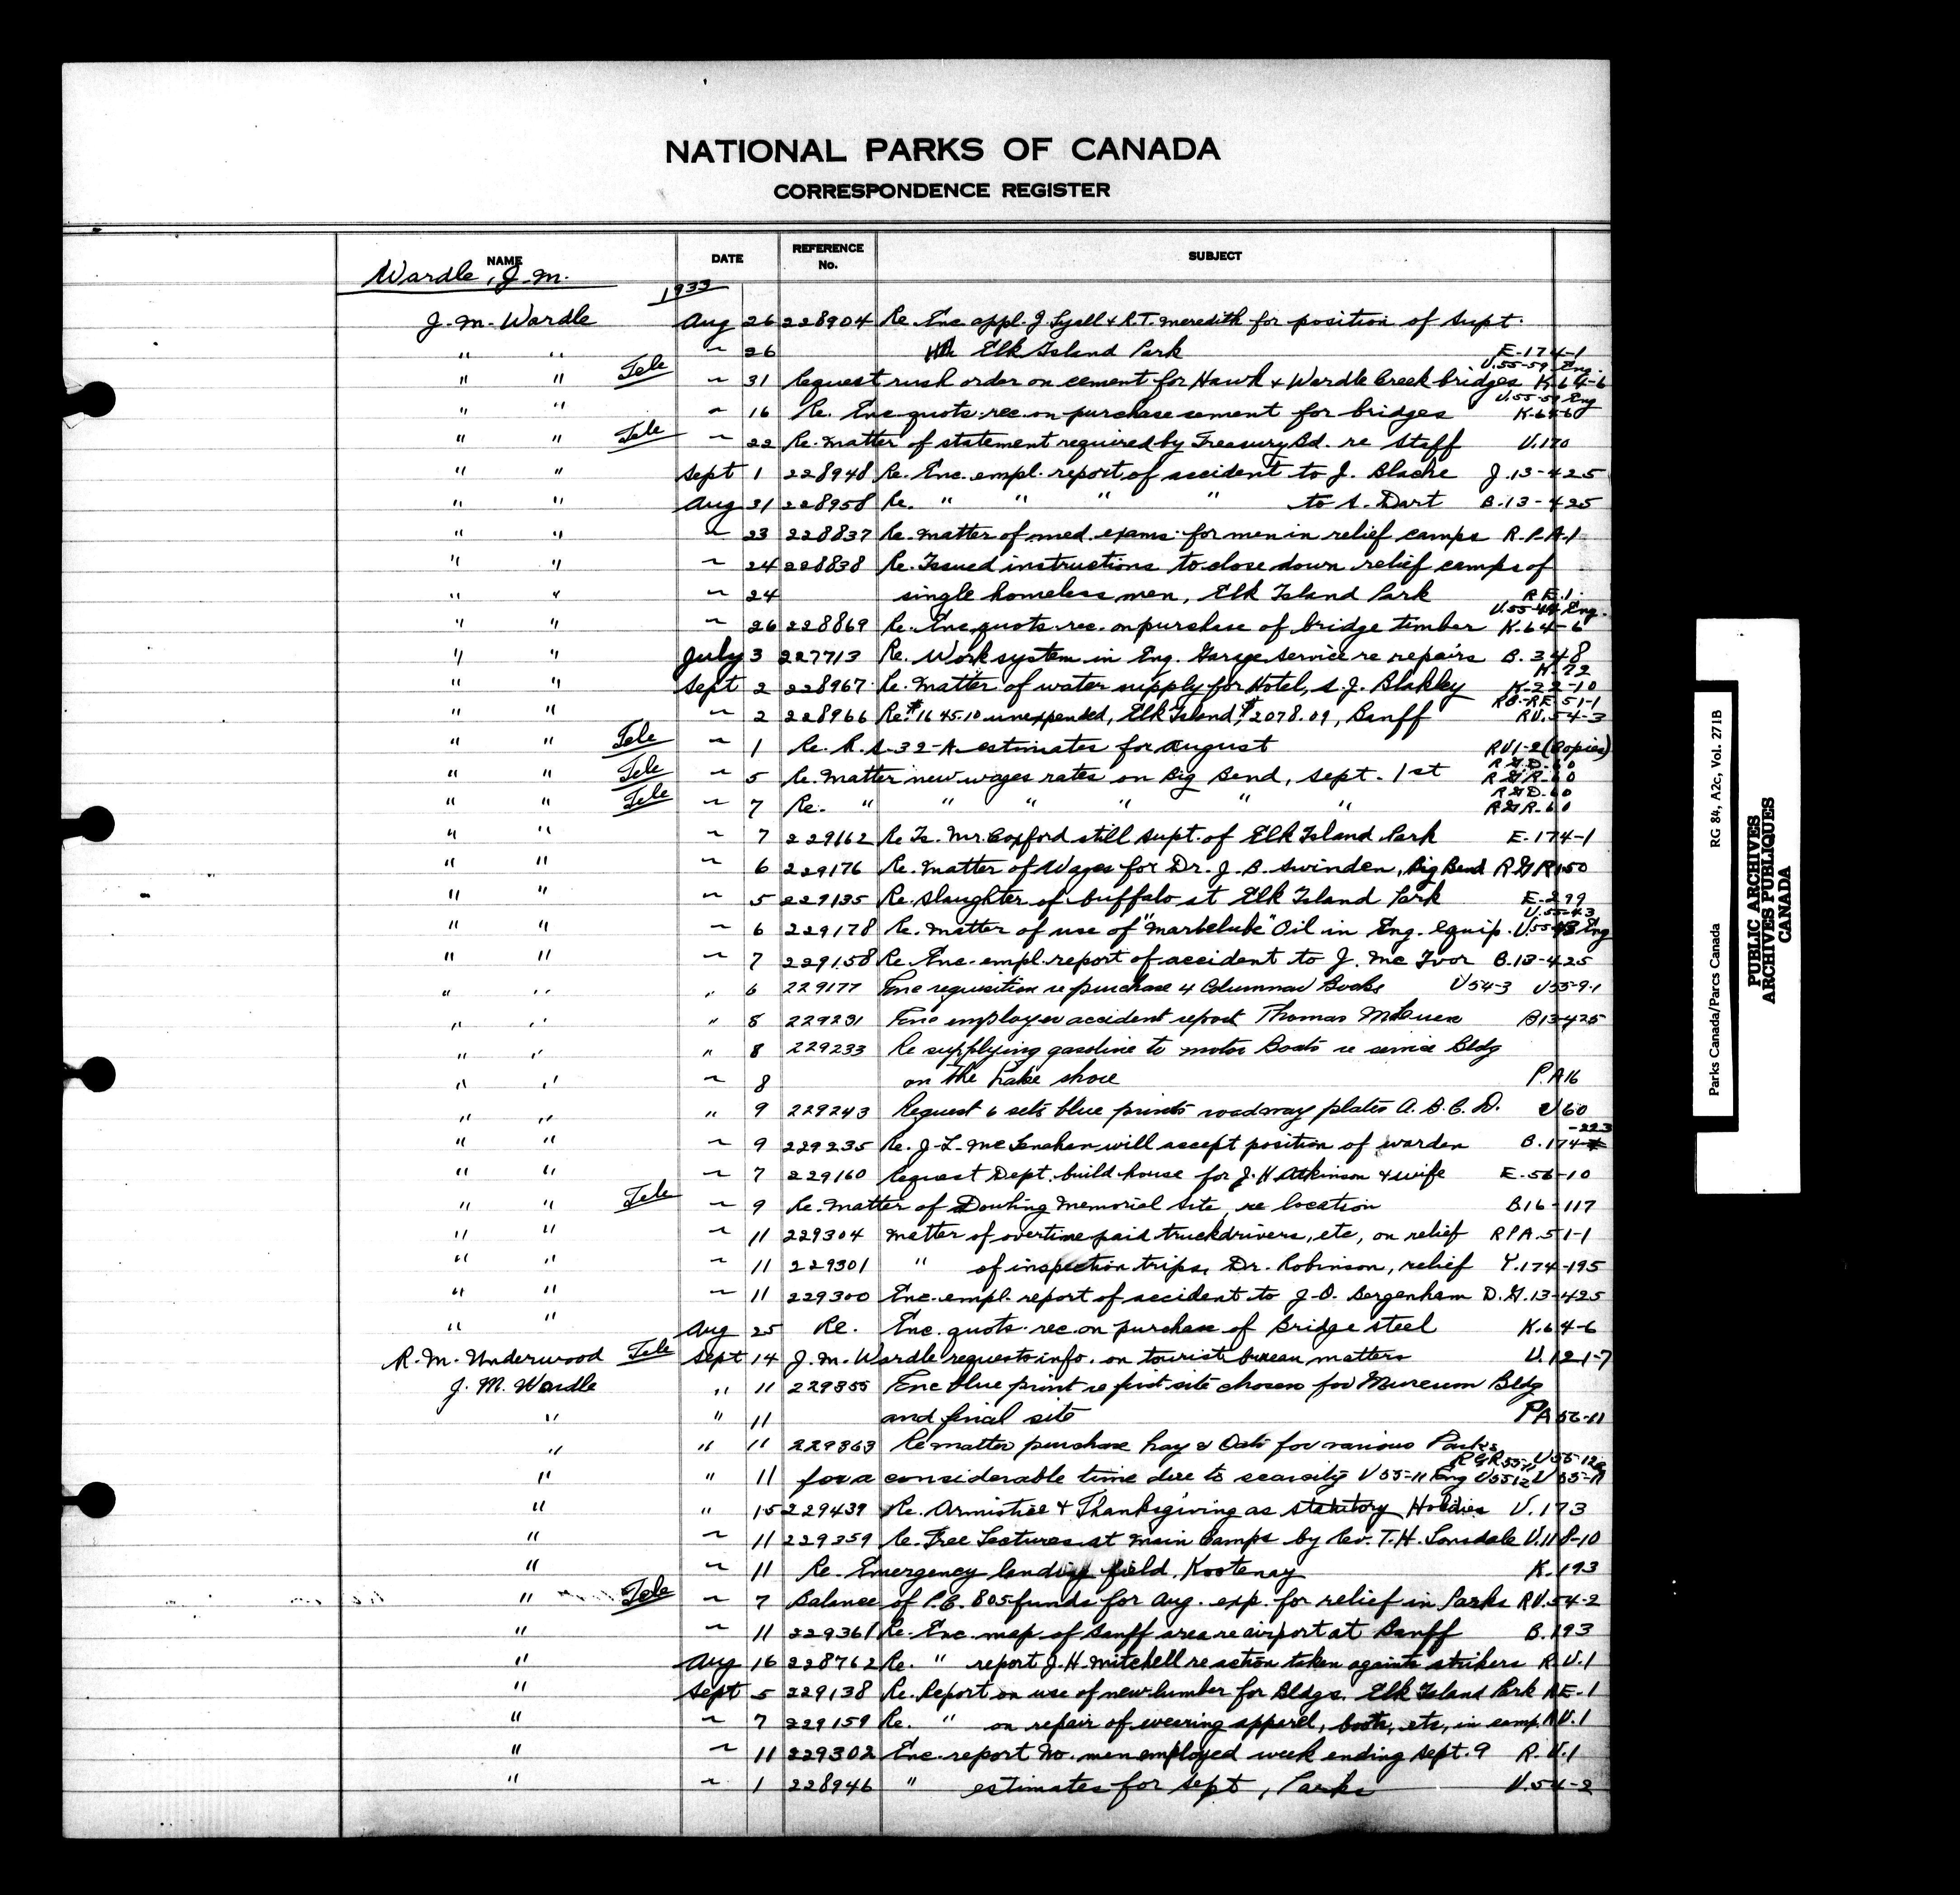 NATIONAL PARKS OF CANADA
CORRESPONDENCE REGISTER
NAME DATE REFERENCE No. SUBJECT
Wardle, J.M.
1933
J.M. Wardle Aug 26 228904 Re. Enc appl. J. Lyall & R.T. Meredith for position of Supt.
" " ~ 26 Elk Island Park E-174-1
" " Tele ~ 31 Request rush order on cement for Hawk & Wardle Creek bridges V.55-59 Eng. K.64-6
" " ~ 16 Re. Enc quots. rec. on purchase cement for bridges V.55-59 Eng K.64-6
" " Tele ~ 22 Re. Matter of statement required by Treasury Bd. re Staff U.170
" " Sept 1 228948 Re. Enc. empl. report of accident to J. Blache J.13-425
" " Aug 31 228958 Re. " " " " to S. Dart B.13-425
" " ~ 23 228837 Re. Matter of med. exams. for men in relief camps R.P.A.1
" " ~ 24 228838 Re. Issued instructions to close down relief camps of
" " ~ 24 single homeless men, Elk Island Park R E.1.
" " ~ 26 228869 Re. Enc. quots. rec. on purchase of bridge timber U.55-44 Eng. K.64-6
" " July 3 227713 Re. Work system in Eng. Garage Service re repairs B.348
" " Sept 2 228967 Re. Matter of water supply for Hotel, S.J. Blakley K.22-10
" " ~ 2 228966 Re. $1645.10 unexpended, Elk Island, $2078.09, Banff RB-RE 51-1 RU.54-3
" " Tele ~ 1 Re. R.S.32-A estimates for August RU1-2 (Copies)
" " Tele ~ 5 Re. Matter new wages rates on Big Bend, Sept. 1st R G D-60 R G R-60
" " Tele ~ 7 Re. " " " " " " R G D-60 R G R-60
" " ~ 7 229162 Re Is. Mr. Coxford still Supt. of Elk Island Park E-174-1
" " 6 229176 Re. Matter of Wages for Dr. J.B. Swinden, Big Bend R G R 150
" " ~ 5 229135 Re. Slaughter of buffalo at Elk Island Park E-299
" " ~ 6 229178 Re. Matter of use of "Marbelube" Oil in Eng. equip. U.55-43 U.55-43 Eng
" " ~ 7 229158 Re Enc. empl. report of accident to J. Mc Ivor B.13-425
" " " 6 229177 Enc requisition re purchase 4 Columnar Books U 54-3 U55-9-1
" " " 8 229231 Enc employer accident report Thomas B13-425
" " " 8 229233 Re supplying gasoline to motor Boats re service Bldg
" " ~ 8 on the Lake shore P.A 16
" " " 9 229243 Request 6 sets blue prints roadway plates A. B. C. D. U 60
" " ~ 9 229235 Re. J-L. McLenehan will accept position of warden B.174-223
" " ~ 7 229160 Request Dept. build house for J.H. Atkinson & wife E.56-10
" " Tele ~ 9 Re. Matter of Dowling Memorial Site, re location B16-117
" " ~ 11 229304 Matter of overtime paid truckdrivers, etc, on relief R P A.51-1
" " ~ 11 229301 " of inspection trips, Dr. Robinson, relief Y.174-195
" " ~ 11 229300 Enc. empl. report of accident to J-O. Bergenham D.G.13-425
" " Aug 25 Re. Enc. quots. rec. on purchase of Bridge steel K.64-6
R.M. Underwood Tele Sept 14 J.M. Wardle requests info. on tourist bureau matters U.121-7
J. M. Wardle " 11 229355 Enc blue print re first site chosen for Museum Bldg
" " 11 and final site PA 56-11
" " 11 229363 Re matter purchase hay & Oats for various Parks
" " 11 for a considerable time due to scarcity U 55-11 Eng U5512 U55-11
" " 15 229439 Re. Armistice & Thanksgiving as statutory Holdies U.173
" ~ 11 229359 Re. Free Lectures at Main Camps by Rev. T.H. Lonsdale U.118-10
" ~ 11 Re. Emergency landing field, Kootenay K.193
" Tele ~ 7 Balance of P.C. 805 funds for Aug. exp. for relief in Parks RU.54-2
" ~ 11 229361 Re. Enc. map of Banff area re airport at Banff B.193
" Aug 16 228762 Re. " report J.H. Mitchell re action taken againts strikers R.U.1
" Sept 5 229138 Re. Report on use of new lumber for Bldgs. Elk Island Park RE-1
" ~ 7 229159 Re. " on repair of wearing apparel, boots, etc, in camp. RU.1
" ~ 11 229302 Enc. report No. men employed week ending Sept. 9 R.U.1
" ~ 1 228946 " estimates for Sept, Parks U.54-2
Parks Canada/Parcs Canada RG 84, A2c, Vol. 271B
PUBLIC ARCHIVES
ARCHIVES PUBLIQUES
CANADA